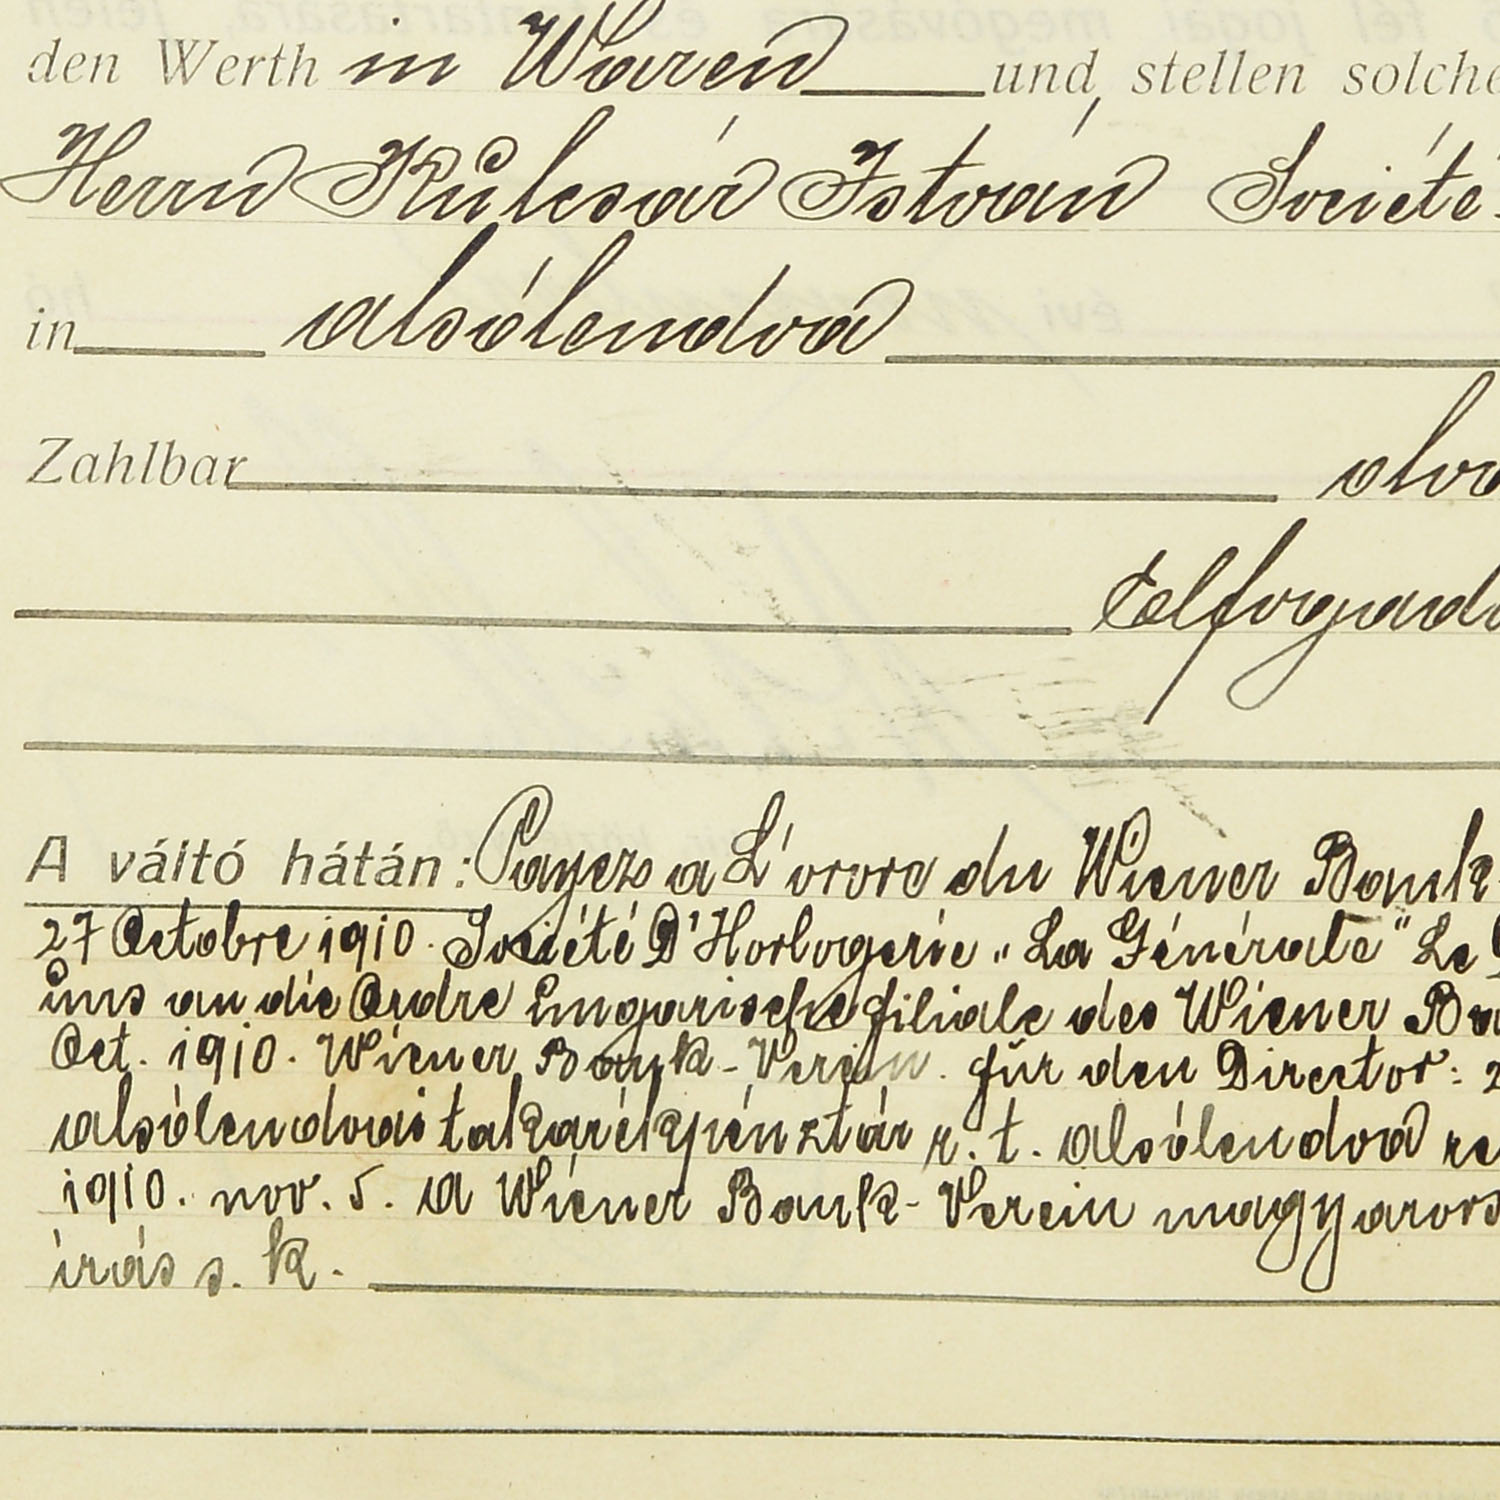 den Werth in Waren und stellen solche
Herrn Kulcsár István Société
in alsólendva
Zahlbar
Elfogad
A váltó hátán: Payez a L'ordre du Wiener Bank-
27 Octobre 1910. Société D'Horlogerie „La Générale" Le
uns an die Ordre Ungarische filiale des Wiener
Oct. 1910. Wiener Bank-Verein. für den Director:
alsólendvai takarékpénztár r. t. alsólendva
1910. nov. 5. A Wiener Bank-Verein magyarors
írás s. k.